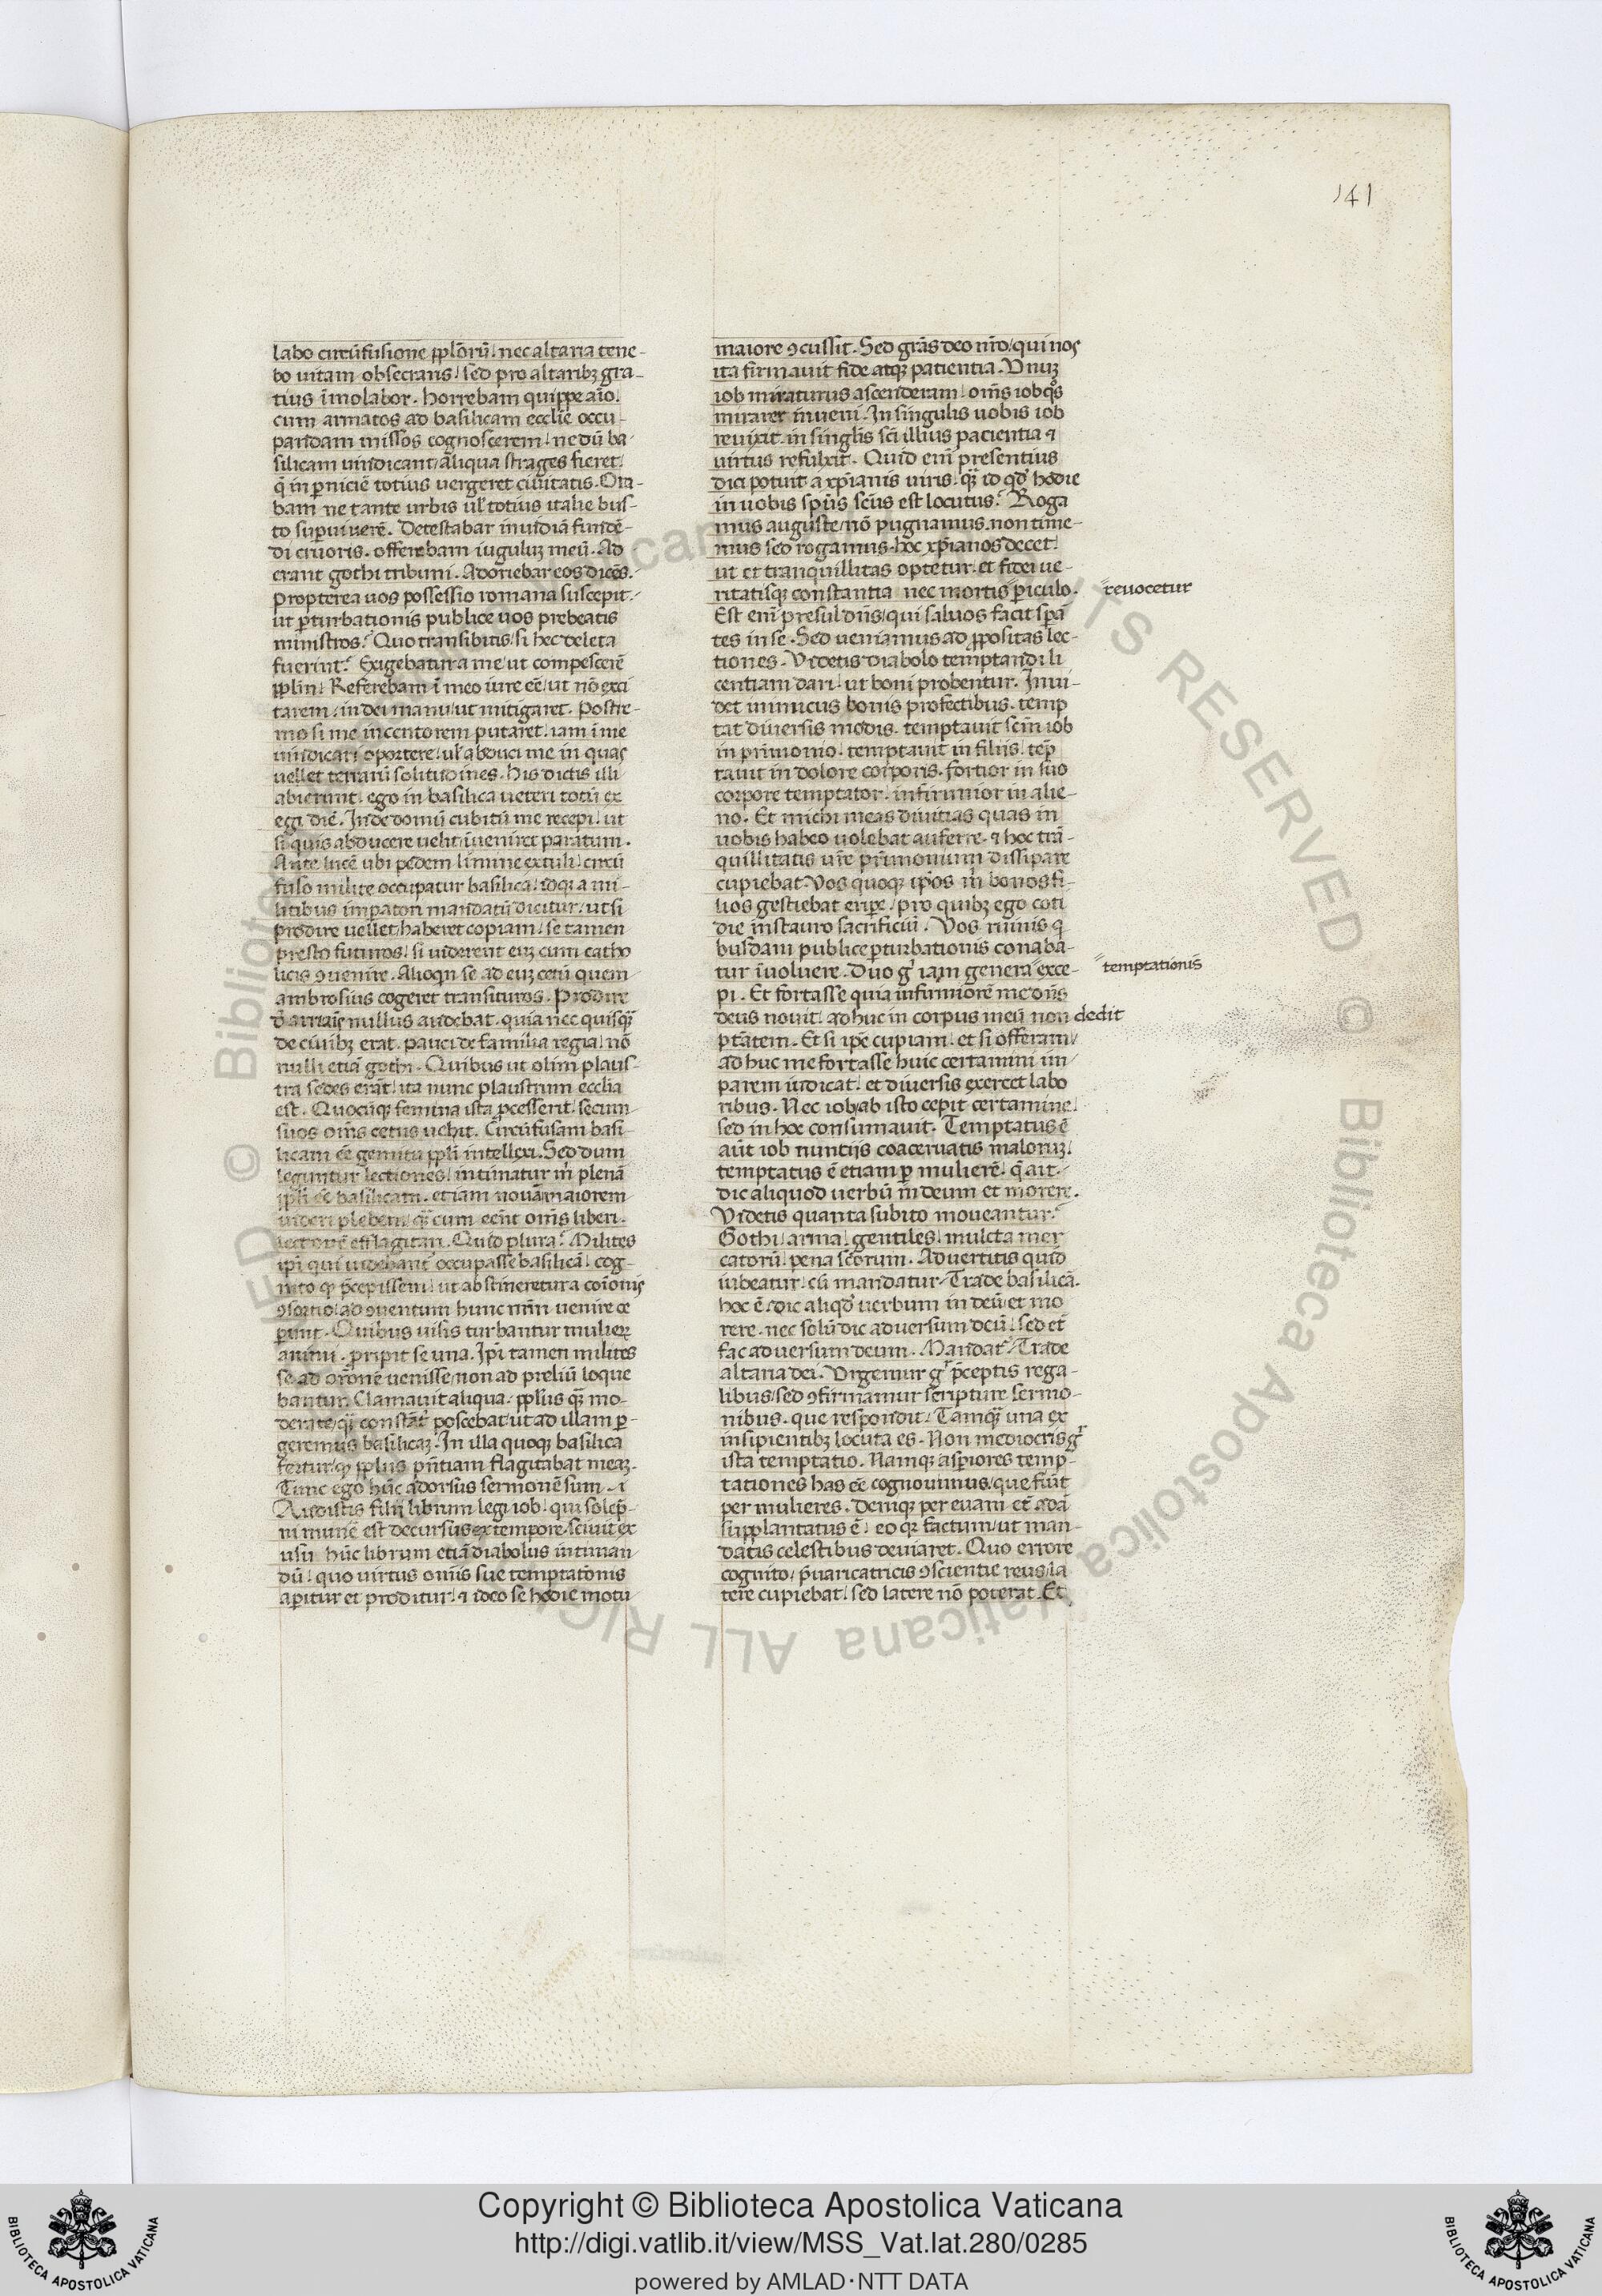 141
labo circūfusione pplōrū nec altaria tene-
bo uitam obsecrans sed pro altaribꝫ gra-
tius īmolabor. horrebam quippe aīo
cum armatos ad basilicam ecclīe occu-
pandam missos cognoscerem ne dū ba-
silicam uindicant aliqua strages fieret
q̄ in ꝑniciē totius uergeret ciuitatis. Ora-
bam ne tante urbis ul' totius italie bus-
to suꝑuiuerē. Detestabar inuidiā fundē-
di cruoris. offerebam iugulūꝫ meū. Ad
erant gothi tribuni. Adoriebar eos dicēs.
propterea uos possessio romana suscepit.
ut ꝑturbationis publice uos prebeatis
ministros? Quo transibitis si hec deleta
fuerint? Exigebatur a me ut compescerē
pplm̄ Referebam ī meo iure eē ut nō exci
tarem in dei manu ut mitigaret. Postre-
mo si me incentorem putaret iam ī me
uindicari oportere ul' abduci me in quas
uellet terrarū solitudines. his dictis illi
abierunt. ego in basilica ueteri totū ex
egi diē. Inde domū cubitū me recepi ut
si quis abducere uelit īueniret paratum.
Ante lucē ubi pedem limine extuli circū
fuso milite occupatur basilica idqꝫ a mi-
litibus imꝑatori mandatū dicitur ut si
prodire uellet haberet copiam se tamen
presto futuros si uiderent eūꝫ cum catho
licis ꝯuenire. Alioqn̄ se ad eūꝫ cetū quem
ambrosius cogeret transituros. Prodire
d̄ arrianis nullus audebat. quia nec quisq̄
de ciuibꝫ erat. pauci de familia regia nō
nulli etiā gothi. Quibus ut olim plaus-
tra sedes erāt ita nunc plaustrum ecclīa
est. Quocūqꝫ femina ista ꝓcesserit secum
suos om̄s cetus uehit. Circūfusam basi-
licam eē gemitu ppli intellexi. Sed dum
leguntur lectiones intimatur m̄ plenā
ppli eē basilicam. etiam nouā maiorem
uideri plebem q̄ cum eēnt om̄s liberi.
lectorē efflagitari. Quid plura? Milites
ip̄i qui uidebant' occupasse basilicā cog-
nito ꝙ p̄cepissem ut abstineretur a cōionis
ꝯsortio ad ꝯuentum hunc nr̄m uenire ce
ꝑunt. Quibus uisis turbantur mulieꝝ
animi. ꝓripit se una. Ip̄i tamen milites
se ad or̄onē uenisse non ad preliū loque
bantur. Clamauit aliqua ppl̄us q̄ mo-
derate q̄ constāt' poscebat ut ad illam ꝑ-
geremus basilicaꝫ. In illa quoqꝫ basilica
fertur ꝙ ppl̄us pn̄tiam flagitabat meaꝫ.
Tunc ego hūc adorsus sermonē sum.
Audistis filii librum legi iob qui solep̄-
ni munē est decursus ex tempore. sciuit ex
usu hūc librum etiā diabolus intiman
dū quo uirtus om̄is sue temptatōnis
aꝑitur et proditur ⁊ ideo se hodie motu
maiore ꝯcussit. Sed grās deo nr̄o qui nos
ita firmauit fide atqꝫ patientia. Unūꝫ
iob miraturus ascenderam om̄s iob qs̄
mirarer inueni. In singulis uobis iob
reuixit in singlīs scī illius pacientia ⁊
uirtus refulxit. Quid enī presentius
dici potuit a xp̄ianis uiris q̄ id qd̄ hodie
in uobis spūs scūs est locutus? Roga
mus auguste nō pugnamus. non time-
mus sed rogamus. hoc xp̄ianos decet
ut et tranquillitas optetur. et fidei ue-
ritatisqꝫ constantia nec mortis ꝑiculo.
reuocetur
Est enī presul dn̄s qui saluos facit sꝑā
tes in se. Sed ueniamus ad ꝓpositas lec-
tiones. Videtis diabolo temptandi li
centiam dari ut boni probentur. Inui-
det inimicus bonis profectibus. temp
tat diuersis modis. temptauit scm̄ iob
in pr̄imonio. temptauit in filiis. tēp
tauit in dolore corporis. fortior in suo
corpore temptator infirmior in alie-
no. Et michi meas diuitias quas in
uobis habeo uolebat auferre. ⁊ hoc trā-
quillitatis ur̄e pr̄imonium dissipare
cupiebat. Vos quoqꝫ ip̄os m̄ bonos fi-
lios gestiebat eriꝑe pro quibꝫ ego coti
die instauro sacrificiū. Vos ruinis q̄
busdam publice ꝑturbationis conaba-
tur īuoluere. Duo gͥ iam genera exce-
temptationis
pi. Et fortasse quia infirmiorē me dn̄s
deus nouit adhuc in corpus meū non dedit
ptātem. Et si ip̄e cupiam et si offeram
adhuc me fortasse huic certamini im
parem iudicat et diuersis exercet labo
ribus. Nec iob ab isto cepit certamine
sed in hoc consumauit. Temptatus ē
aūt iob nuntiis coaceruatis maloruꝫ
temptatus ē etiam ꝑ mulierē. q̄ ait.
dic aliquod uerbū in deum et morere.
Videtis quanta subito moueantur.
Gothi arma gentiles mulcta mer
catorū pena scōrum. Aduertitis quid
iubeatur cū mandatur. Trade basilicā.
hoc ē. dic aliqd̄ uerbum in deū et mo
rere. nec solū dic aduersum deū sed et
fac aduersum deum. Mandat' Trade
altaria dei. Urgemur gͥ p̄ceptis rega-
libus sed ꝯfirmamur scripture sermo-
nibus. que respondit. Tamq̄ una ex
insipientibꝫ locuta es. Non mediocris gͥ
ista temptatio. Namqꝫ asꝑiores temp-
tationes has eē cognouimus que fiūt
per mulieres. Deniqꝫ per euam et adā
supplantatus ē eoqꝫ factum ut man-
datis celestibus deuiaret. Quo errore
cognito p̄uaricatricis ꝯscientie reus la
tere cupiebat sed latere nō poterat. Et
© Biblioteca Apostolica Vaticana ALL RIGHTS RESERVED
Copyright © Biblioteca Apostolica Vaticana
http://digi.vatlib.it/view/MSS_Vat.lat.280/0285
powered by AMLAD·NTT DATA
BIBLIOTECA APOSTOLICA VATICANA
BIBLIOTECA APOSTOLICA VATICANA